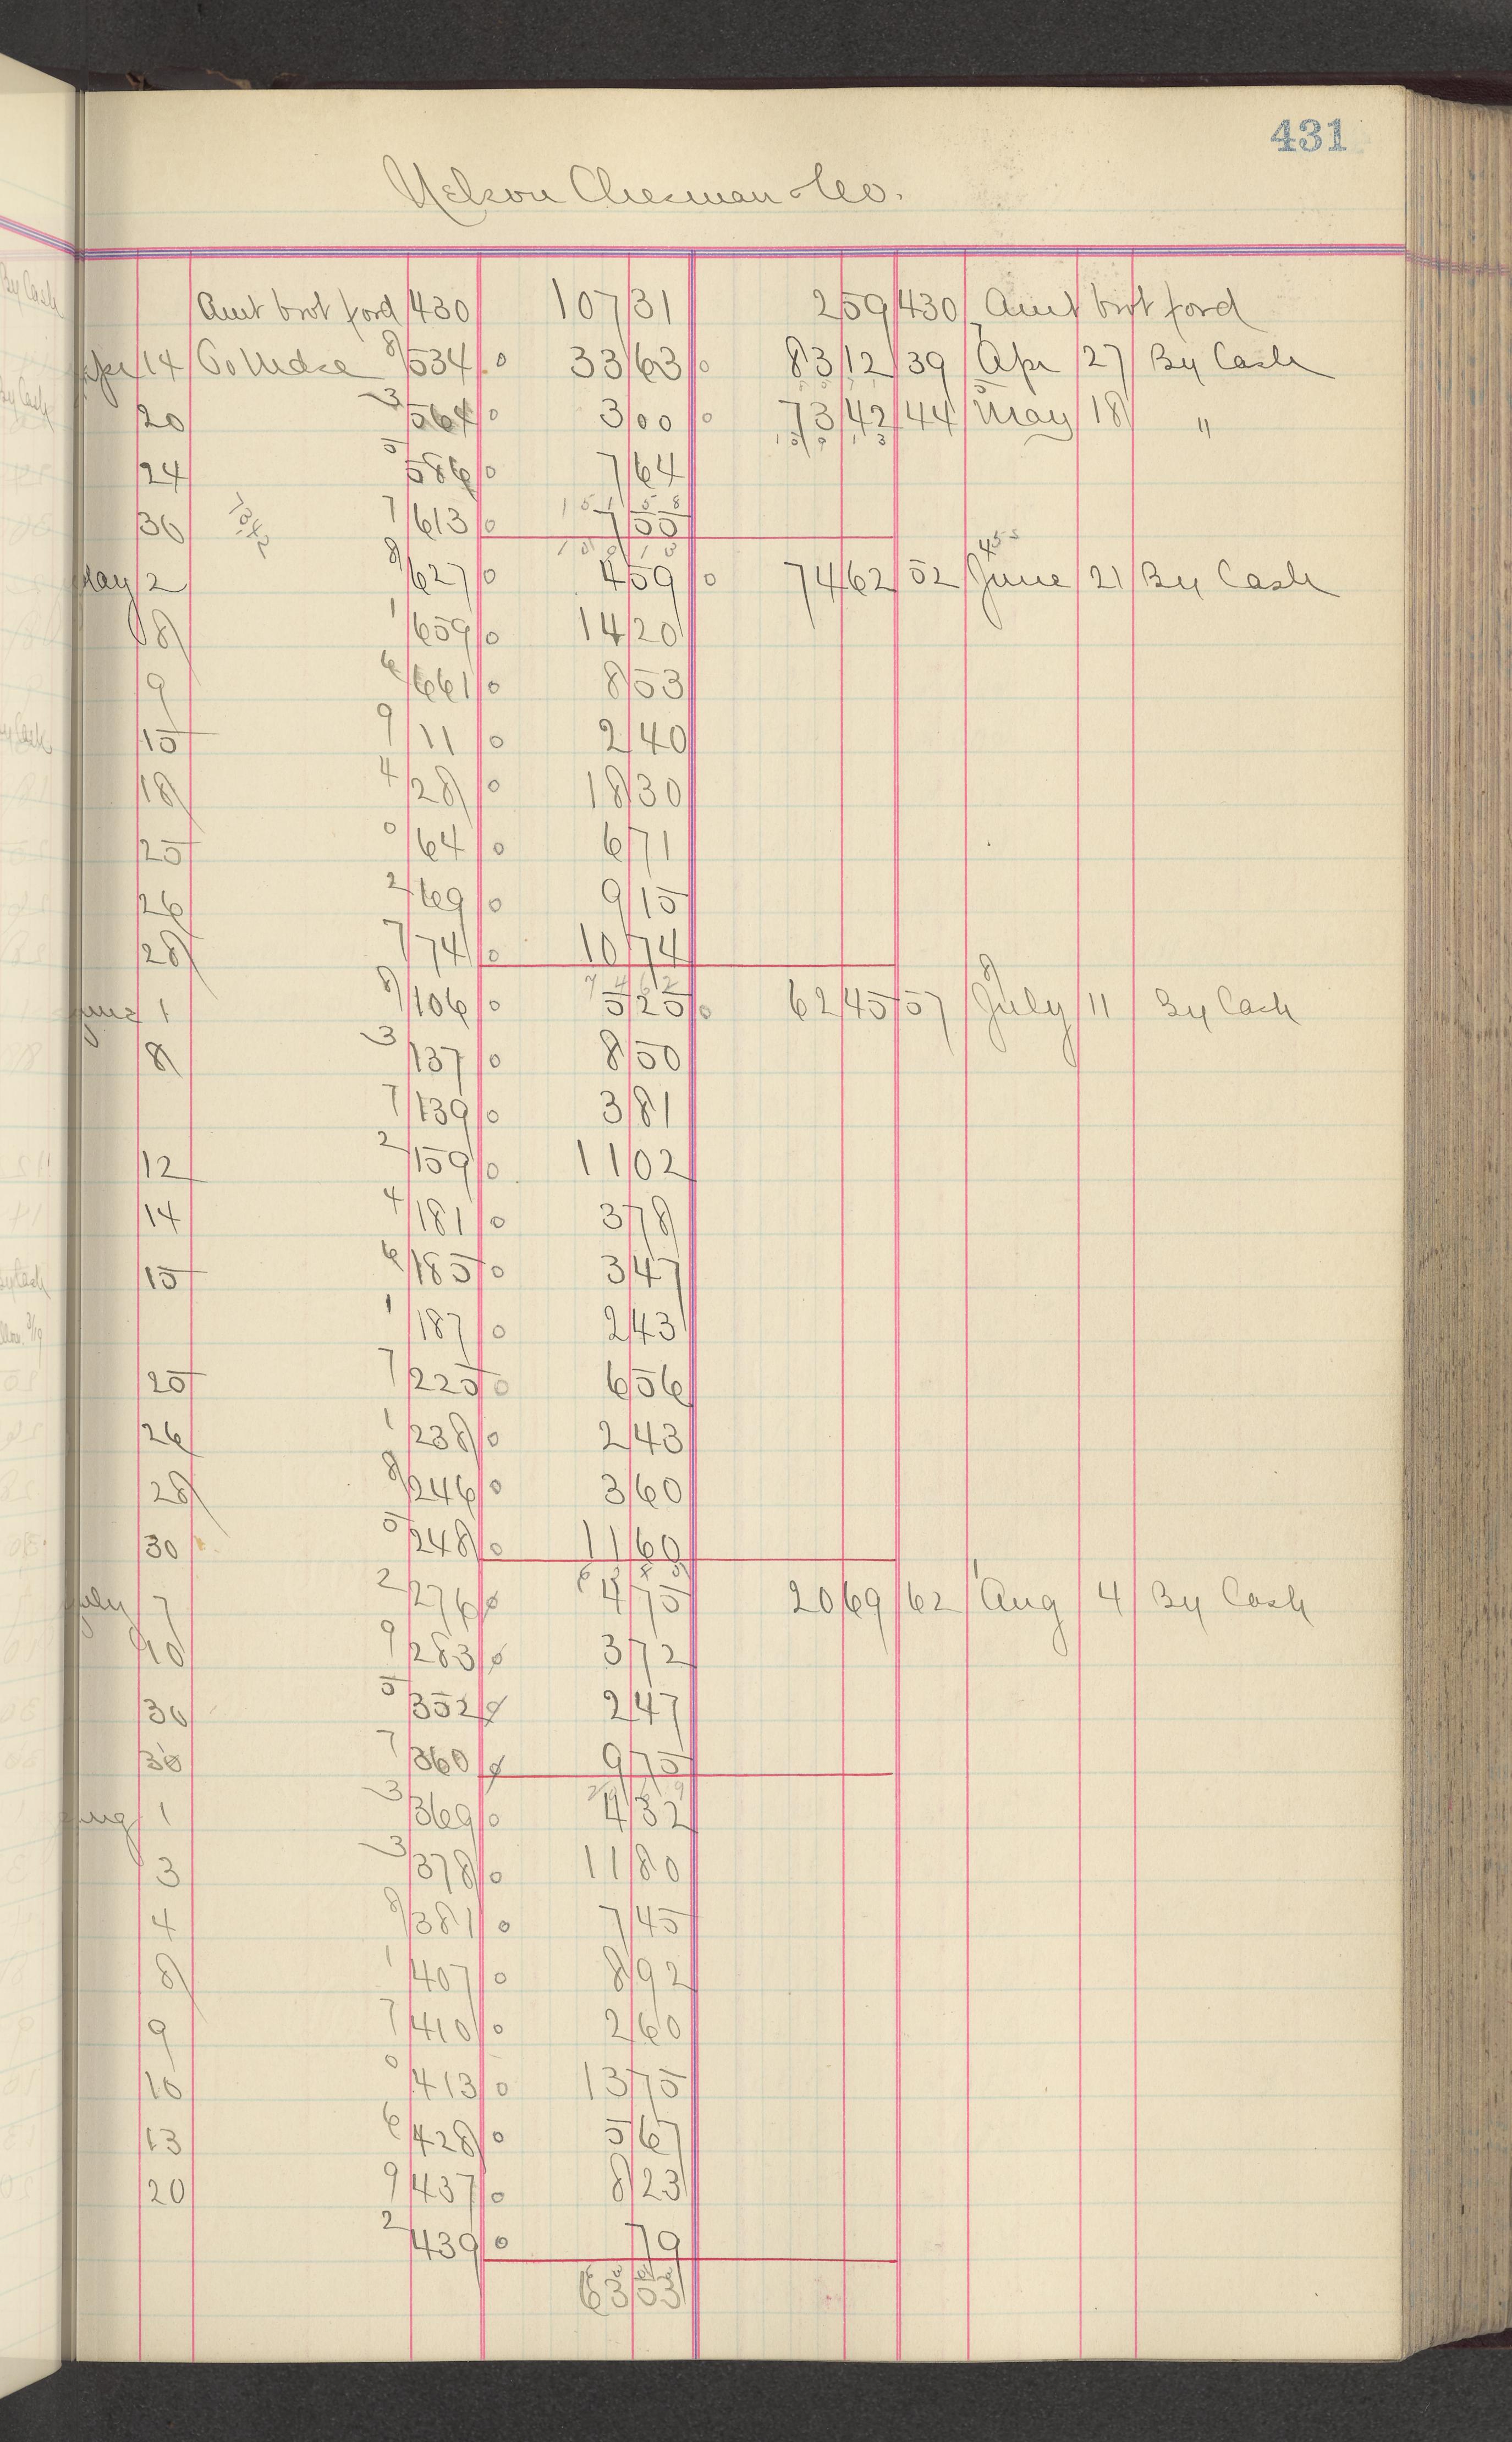 431
Nelson Chesman & Co.
Amt brot ford 430 107 31 2 59 430 Amt brot ford
Apr 14 To Mdse 8/534 0 33 63 0 83 12 39 Apr 27 By Cash
20 3/564 0 3 00 0 73 42 44 May 18 "
24 5/586 0 7 64
30 7342 7/613 0 7 55
May 2 8/627 0 4 59 0 74 62 52 June 21 By Cash
8 1/659 0 14 20
9 6/661 0 8 53
15 9/11 0 2 40
18 4/28 0 18 30
25 0/64 0 6 71
26 2/69 0 9 15
28 7/74 0 10 74
74 62
June 1 8/106 0 5 25 0 62 45 57 July 11 By Cash
8 3/137 0 8 50
7/139 0 3 81
12 2/159 0 11 02
14 4/181 0 3 78
15 6/185 0 3 47
1/187 0 2 43
25 7/225 0 6 56
26 1/238 0 2 43
28 8/246 0 3 60
30 5/248 0 11 60
July 7 2/276 0 4 75 20 69 62 Aug 4 By Cash
10 9/283 0 3 72
30 5/352 0 2 47
30 7/360 0 9 75
Aug 1 3/369 0 4 32
3 3/378 0 11 80
4 8/381 0 7 45
8 1/407 0 8 92
9 7/410 0 2 60
10 0/413 0 13 75
13 6/428 0 5 67
20 9/437 0 8 23
2/439 0 79
63 53